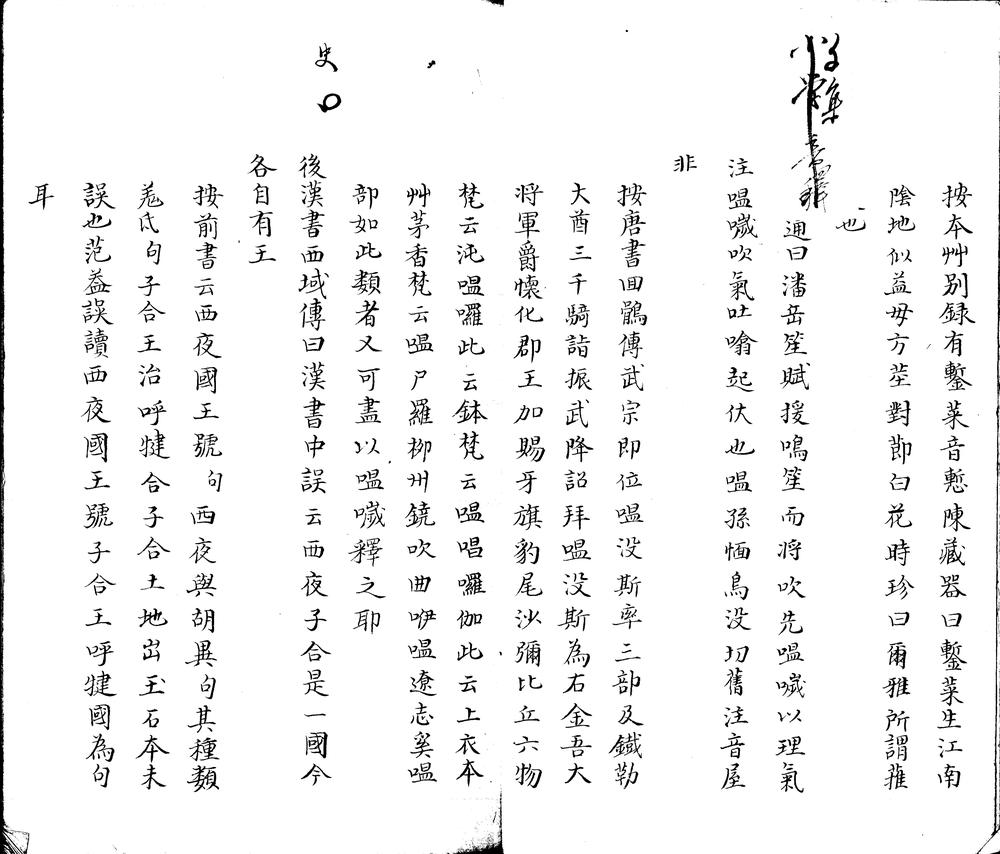 按本艸别録有鏨菜音慙陳藏器曰鏨菜生江南
隂地似益毋方莖對節白花時珍曰爾雅所謂蓷
也
通曰潘岳笙賦援鳴笙而将吹先嗢噦以理氣
注嗢噦吹氣吐噏起伏也嗢孫愐烏没切舊注音屋
非
按唐書回鶻傳武宗即位嗢没斯率三部及鐵勒
大酋三千騎詣振武降詔拜嗢没斯為右金吾大
将軍爵懷化郡王加賜牙旗豹尾沙彌比丘六物
梵云沌嗢囉此云鉢梵云嗢唱囉伽此云上衣本
艸茅香梵云嗢尸羅栁州鐃吹曲咿嗢遼志奚嗢
部如此類者又可盡以嗢噦釋之耶
史
後漢書西域傳曰漢書中誤云西夜子合是一國今
各自有王
按前書云西夜國王號句西夜與胡異句其種類
羗氐句子合王治呼犍合子合土地出玉石本未
誤也范益誤讀西夜國王號子合王呼犍國為句
耳